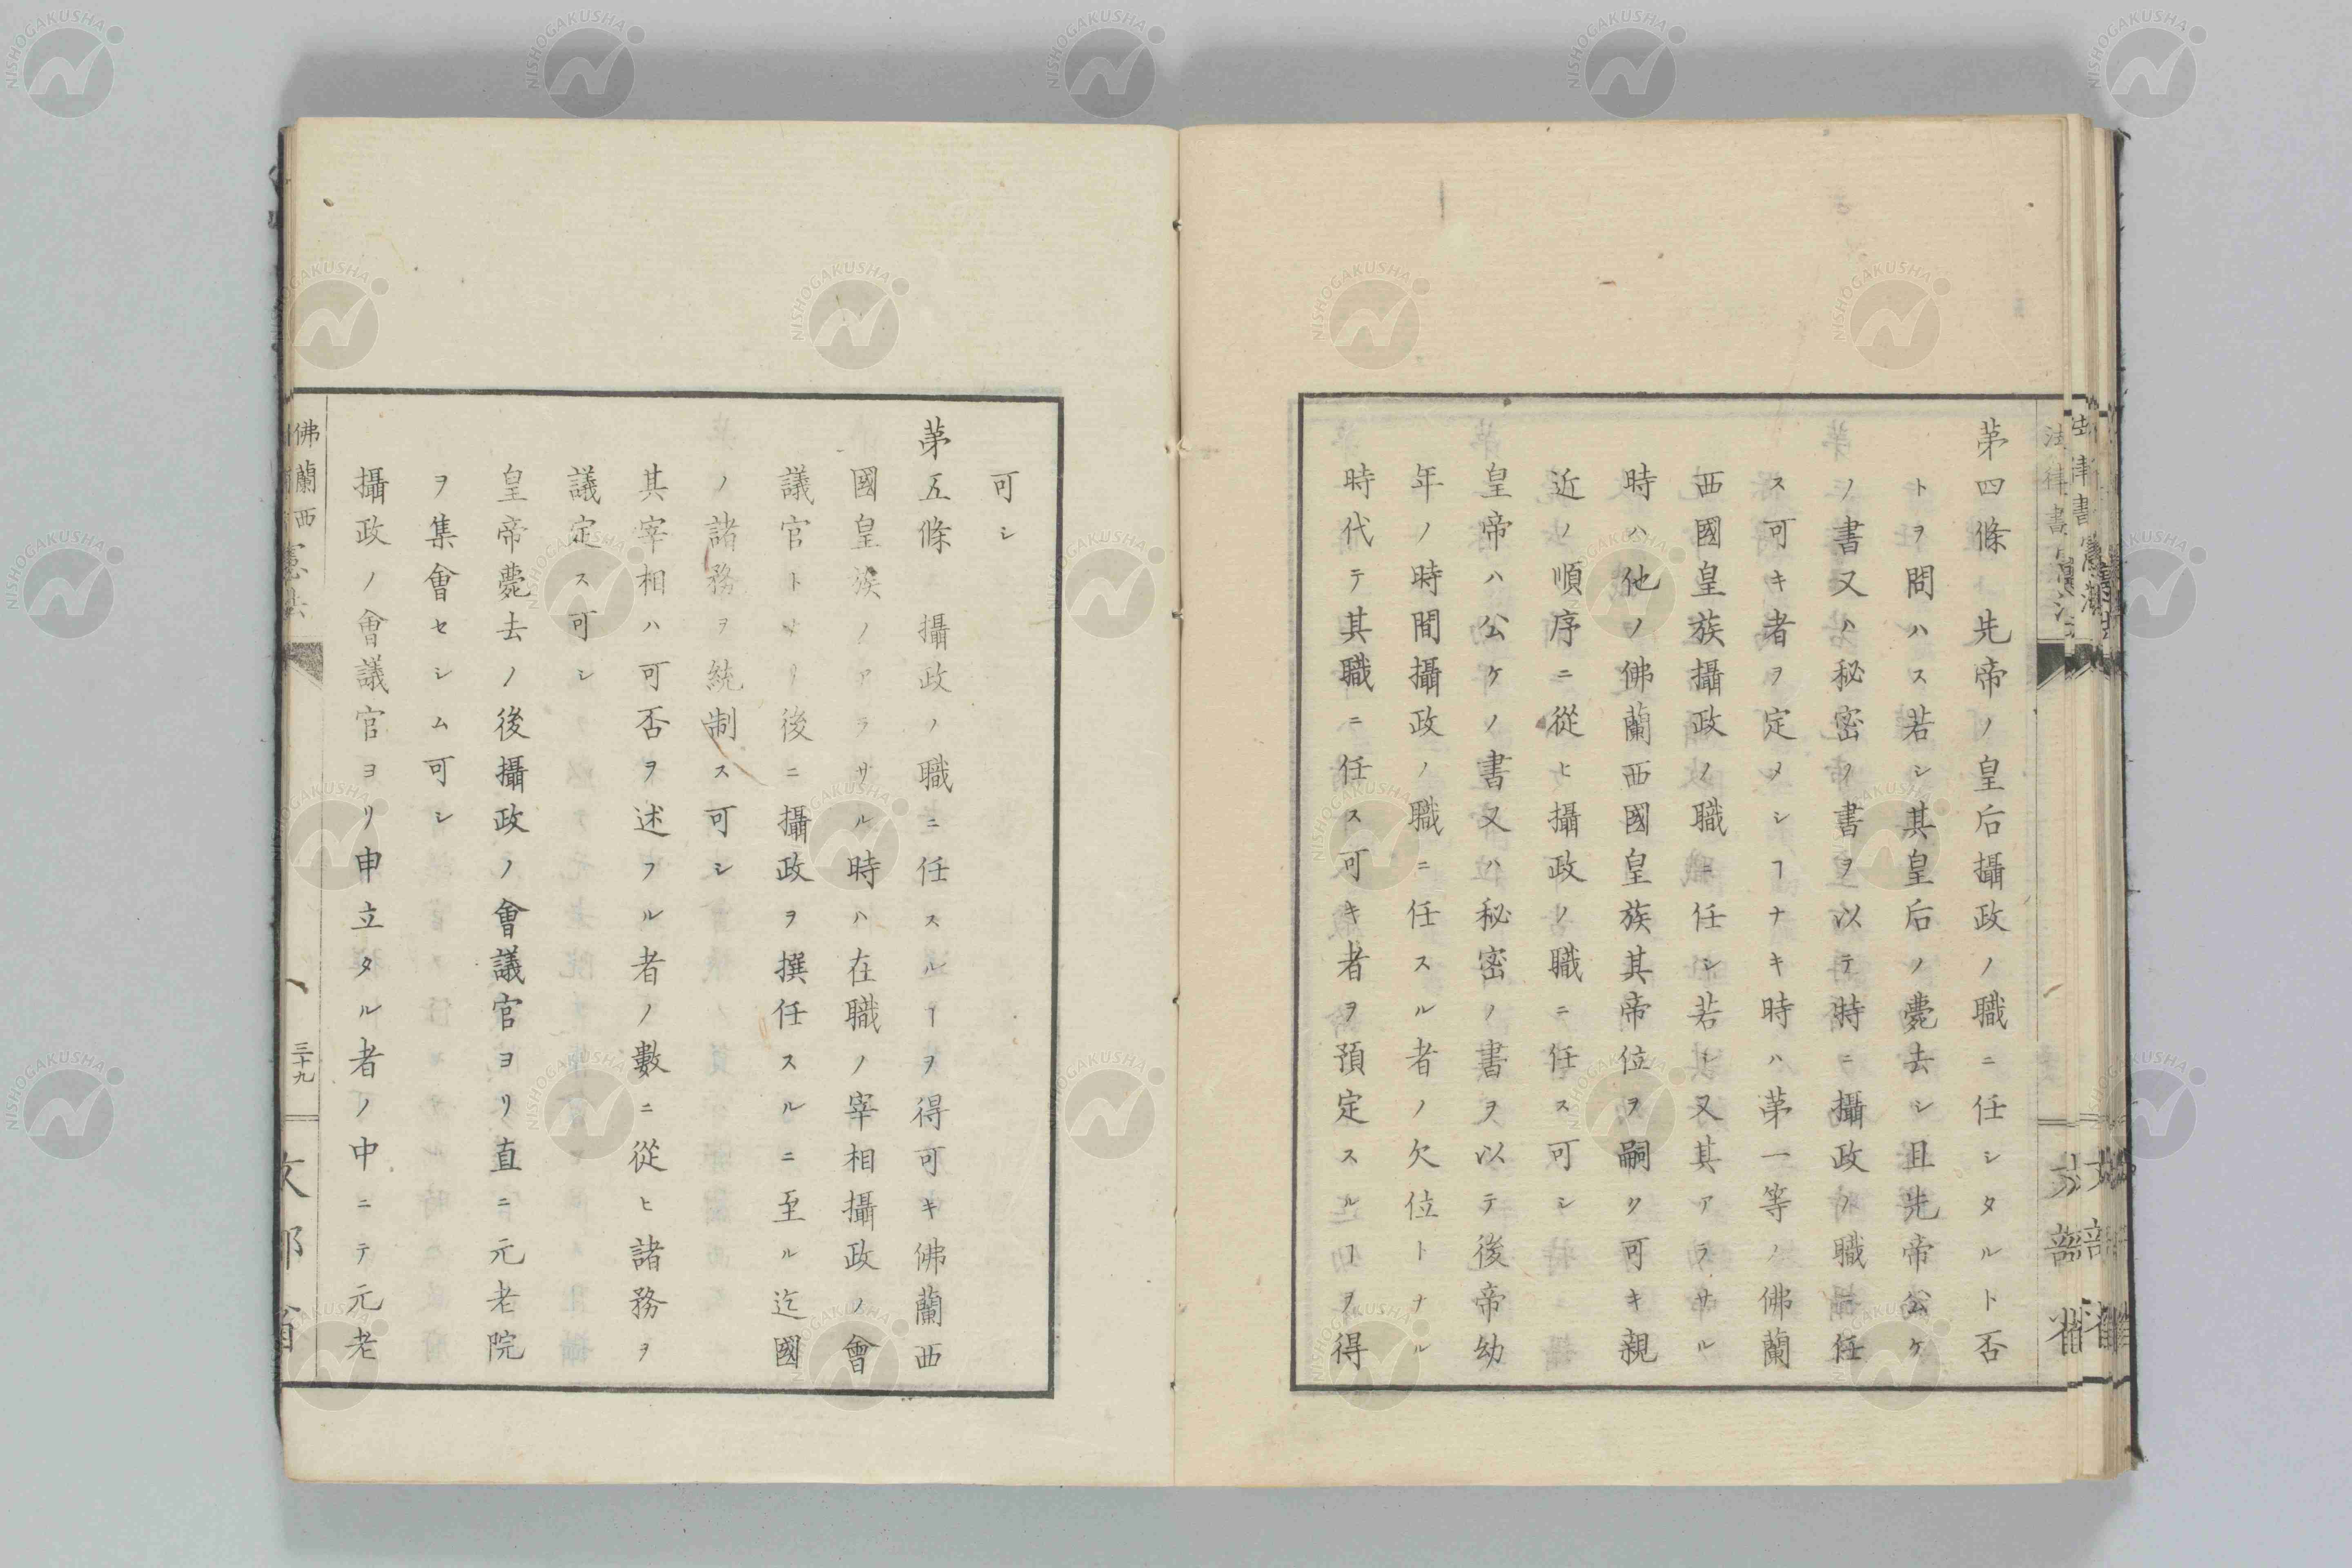 第四條　先帝ノ皇后攝政ノ職ニ任シタルト否
トヲ問ハス若シ其皇后ノ薨去シ且先帝公ケ
ノ書又ハ秘密ノ書ヲ以テ時ニ攝政ノ職ニ任
ス可キ者ヲ定メシヿナキ時ハ第一等ノ佛蘭
西國皇族攝政ノ職ニ任シ若シ又其アラサル
時ハ他ノ佛蘭西國皇族其帝位ヲ嗣ク可キ親
近ノ順序ニ從ヒ攝政ノ職ニ任ス可シ
皇帝ハ公ケノ書又ハ秘密ノ書ヲ以テ後帝幼
年ノ時間攝政ノ職ニ任スル者ノ欠位トナル
時代テ其職ニ任ス可キ者ヲ預定スルヿヲ得
可シ
第五條　攝政ノ職ニ任スルヿヲ得可キ佛蘭西
國皇族ノアラサル時ハ在職ノ宰相攝政ノ會
議官トナリ後ニ攝政ヲ撰任スルニ至ル迄國
ノ諸務ヲ統制ス可シ
其宰相ハ可否ヲ述フル者ノ數ニ從ヒ諸務ヲ
議定ス可シ
皇帝薨去ノ後攝政ノ會議官ヨリ直ニ元老院
ヲ集會セシム可シ
攝政ノ會議官ヨリ申立タル者ノ中ニテ元老
佛蘭西憲法
三十九
文部省
法律書
文部省
NISHOGAKUSHA